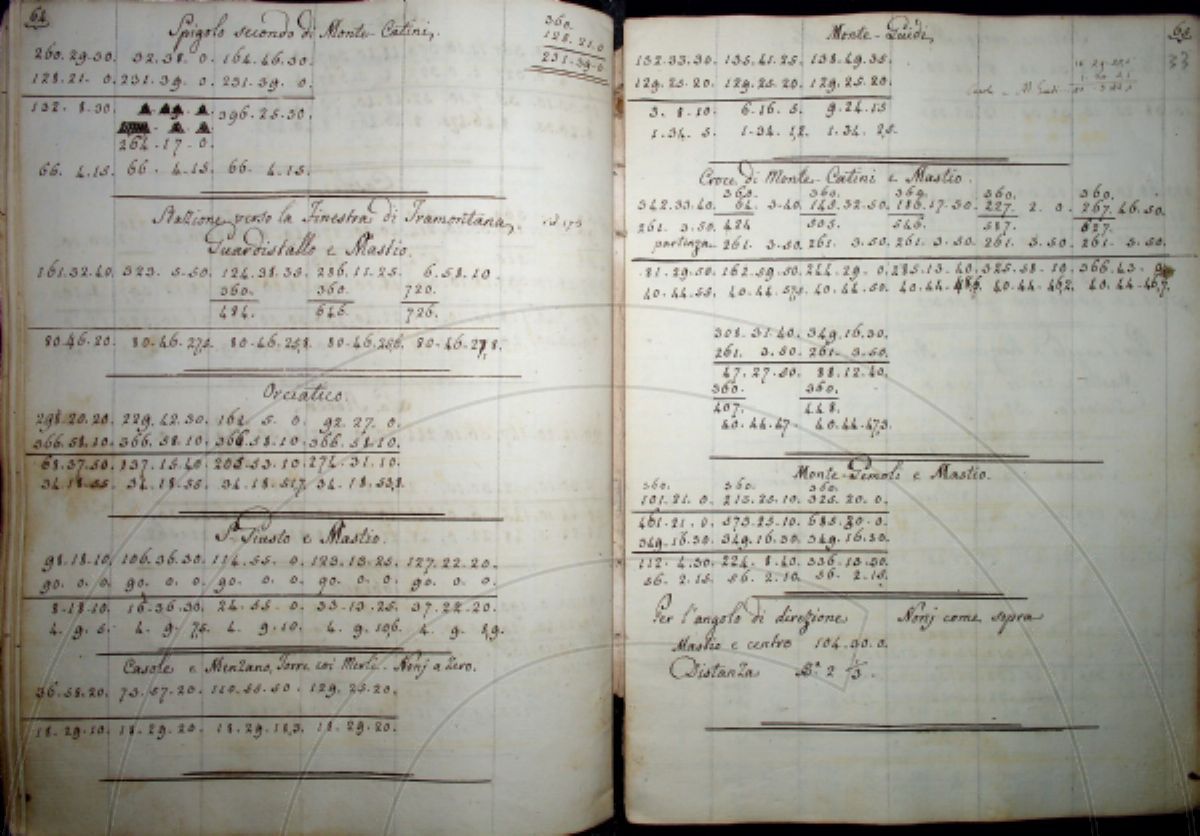 64.
Spigolo secondo di Monte-Catini,
360.
128. 21. 0
231-39-0
260. 29. 30. 32. 38. 0. 164. 46. 30.
128. 21- 0. 231. 39. 0. 231. 39. 0.
132. 8. 30. 396. 25. 30.
264. 17. 0.
66. 4. 15. 66. 4. 15. 66. 4. 15.
Stazione verso la Finestra di Tramontana,
Guardistallo e Mastio.
161. 32. 40. 323. 5. 50. 124. 38. 35. 286. 11. 25. 6. 58. 10.
360. 360. 720.
484. 646. 726.
80-46. 20. 80-46-27,5. 80-46. 25,8. 80-46. 25,6. 80-46. 27,8.
Orciatico.
298. 20. 20. 229. 42. 30. 164. 5. 0. 92. 27. 0.
366. 58. 10. 366. 58. 10. 366. 58. 10. 366. 58. 10.
68. 37. 50. 137. 15. 40. 202. 53. 10. 274. 31. 10.
34. 18. 55. 34. 18. 55. 34. 18. 51,7. 34. 18. 53,8.
S. Giusto e Mastio.
98. 18. 10. 106. 36. 30. 114. 55. 0. 123. 13. 25. 127. 22. 20.
90. 0. 0. 90. 0. 0. 90. 0. 0. 90. 0. 0. 90. 0. 0.
8. 18. 10. 16. 36. 30. 24. 55. 0. 33. 13. 25. 37. 22. 20.
4. 9. 5. 4. 9. 7,5. 4. 9. 10. 4. 9. 10,6. 4. 9. 8,9.
Casole e Menzano, Torre coi Merli. Nonj a Zero.
36. 58. 20. 73. 57. 20. 110. 55. 50. 129. 25. 20.
18. 29. 10. 18. 29. 20. 18. 29. 18,3. 18. 29. 20.
65.
33
Monte-Guidi,
132. 33. 30. 135. 41. 25. 138. 49. 35.
129. 25. 20. 129. 25. 20. 129. 25. 20.
3. 8. 10. 6. 16. 5. 9. 24. 15
1. 34. 5. 1. 34. 1,2. 1. 34. 2,5.
Croce di Monte-Catini e Mastio.
360. 360. 360. 360. 360.
342. 33. 40. 64. 3. 40. 145. 32. 50. 186. 17. 30. 227. 2. 0. 267. 46. 50.
261. 3. 50. 424 505. 546. 587. 627.
partenza 261. 3. 50. 261. 3. 50. 261. 3. 50. 261. 3. 50. 261. 3. 50.
81. 29. 50. 162. 59. 50. 244. 29. 0. 285. 13. 40. 325. 58. 10. 366. 43. 0.
40. 44. 55. 40. 44. 57,5. 40. 44. 50. 40. 44. 48,6. 40. 44. 46,2. 40. 44. 46,7.
308. 31. 40. 349. 16. 30.
261. 3. 50. 261. 3. 50.
47. 27. 50. 88. 12. 40.
360. 360.
407. 448.
40. 44. 47 40. 44. 47,3.
Monte-Gemoli e Mastio.
360. 360. 360.
101. 21. 0. 213. 25. 10. 325. 20. 0.
461. 21. 0. 573. 25. 10. 685. 30. 0.
349. 16. 30. 349. 16. 30. 349. 16. 30.
112. 4. 30. 224. 8. 40. 336. 13. 30.
56. 2. 15. 56. 2. 10. 56. 2. 15.
Per l'angolo di direzione Nonj come sopra
Mastio e centro 104. 30. 0.
Distanza Ba. 2 1/3.